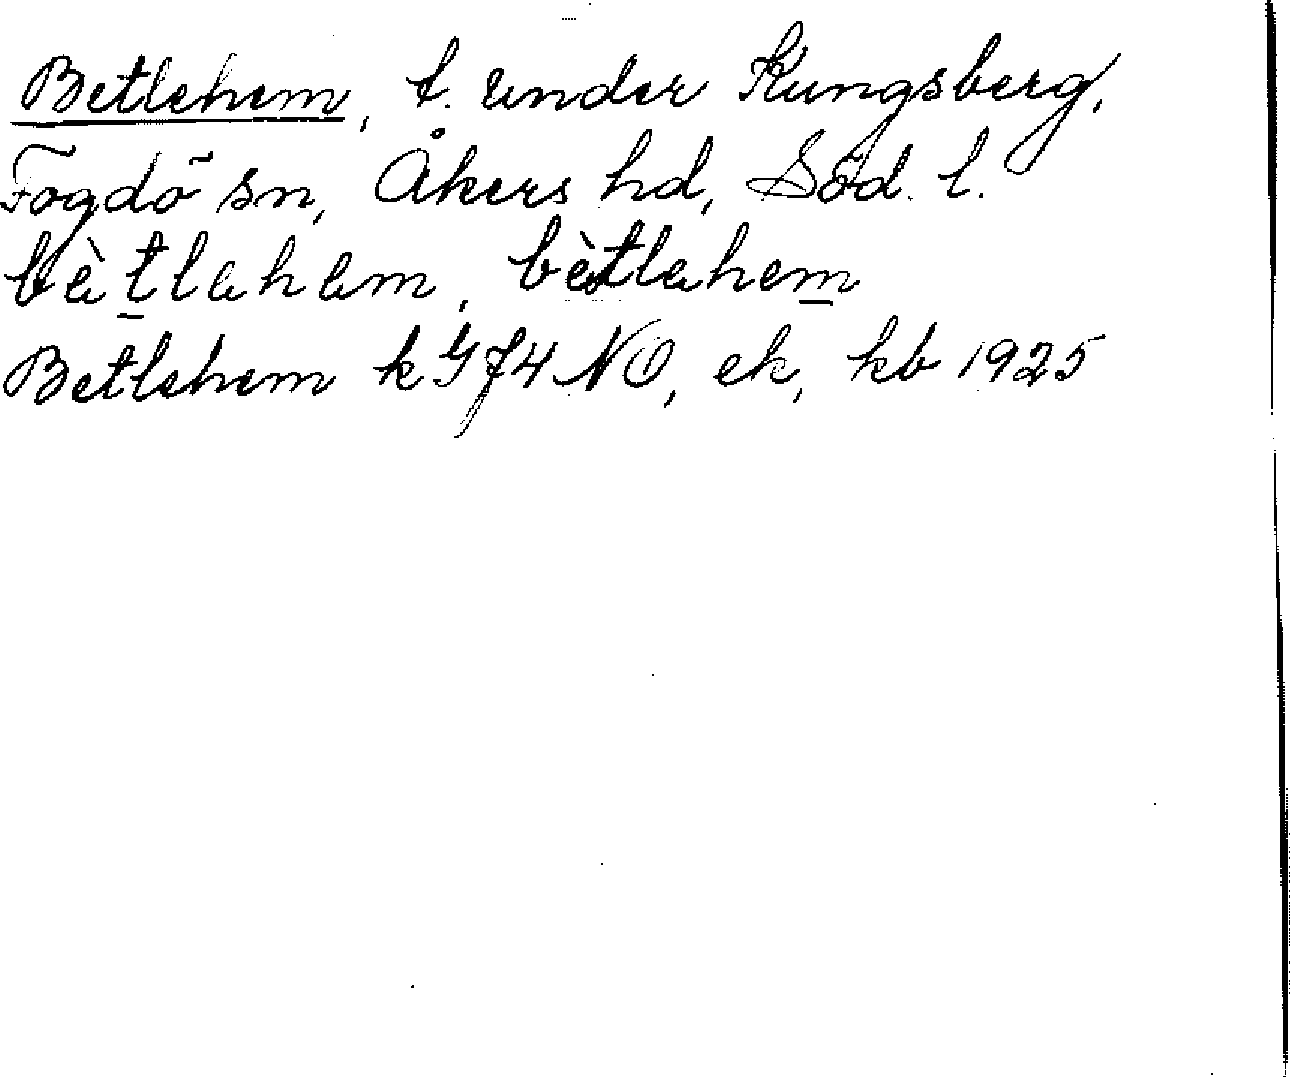 Betlehem, t. under Kungsberg,
Fogdö sn, Åkers hd, Söd. l.
bètlahem, bètlahem
Betlehem k G 74 NO, ek, kb 1925